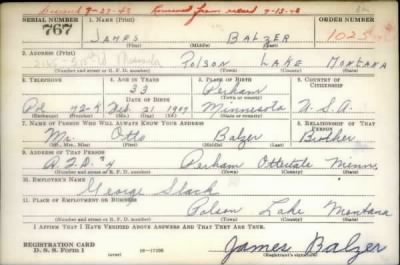 SERIAL NUMBER 1. NAME (Print) ORDER NUMBER
767 JAMES BALZER 1025
(First) (Middle) (Last)
2. ADDRESS (Print)
POLSON LAKE MONTANA
(Number and street or R. F. D. number) (Town) (County) (State)
3. TELEPHONE 4. AGE IN YEARS 5. PLACE OF BIRTH 6. COUNTRY OF CITIZENSHIP
33 Perham
DATE OF BIRTH (Town or county)
Pol 72-9 Feb 21 1909 Minnesota U.S.A.
(Exchange) (Number) (Mo.) (Day) (Yr.) (State or country)
7. NAME OF PERSON WHO WILL ALWAYS KNOW YOUR ADDRESS 8. RELATIONSHIP OF THAT PERSON
Mr. Otto Balzer Brother
(Mr., Mrs., Miss) (First) (Middle) (Last)
9. ADDRESS OF THAT PERSON
R.F.D. #4 Perham Ottertail Minn.
(Number and street or R. F. D. number) (Town) (County) (State)
10. EMPLOYER'S NAME
George Slack
11. PLACE OF EMPLOYMENT OR BUSINESS
Polson Lake Montana
(Number and street or R. F. D. number) (Town) (County) (State)
I AFFIRM THAT I HAVE VERIFIED ABOVE ANSWERS AND THAT THEY ARE TRUE.
REGISTRATION CARD
D. S. S. Form 1 James Balzer
(Registrant's signature)